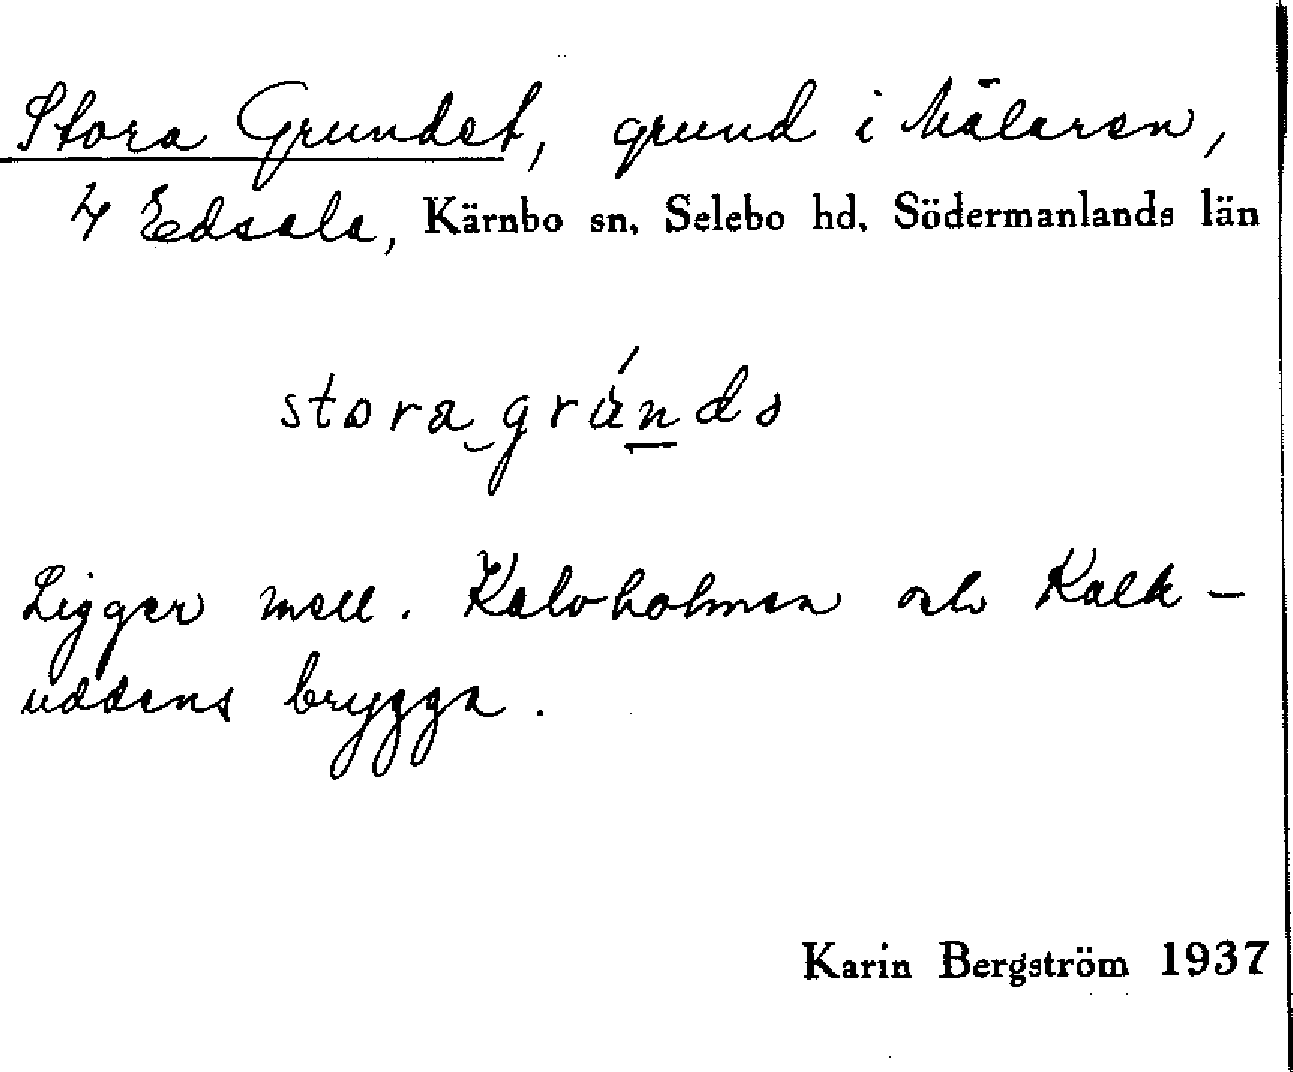 Stora Grundet, grund i Mälaren,
4 Edsala, Kärnbo sn, Selebo hd, Södermanlands län
stora gránds
Ligger mell. Kalvholmen och Kalk-
uddens brygga.
Karin Bergström 1937